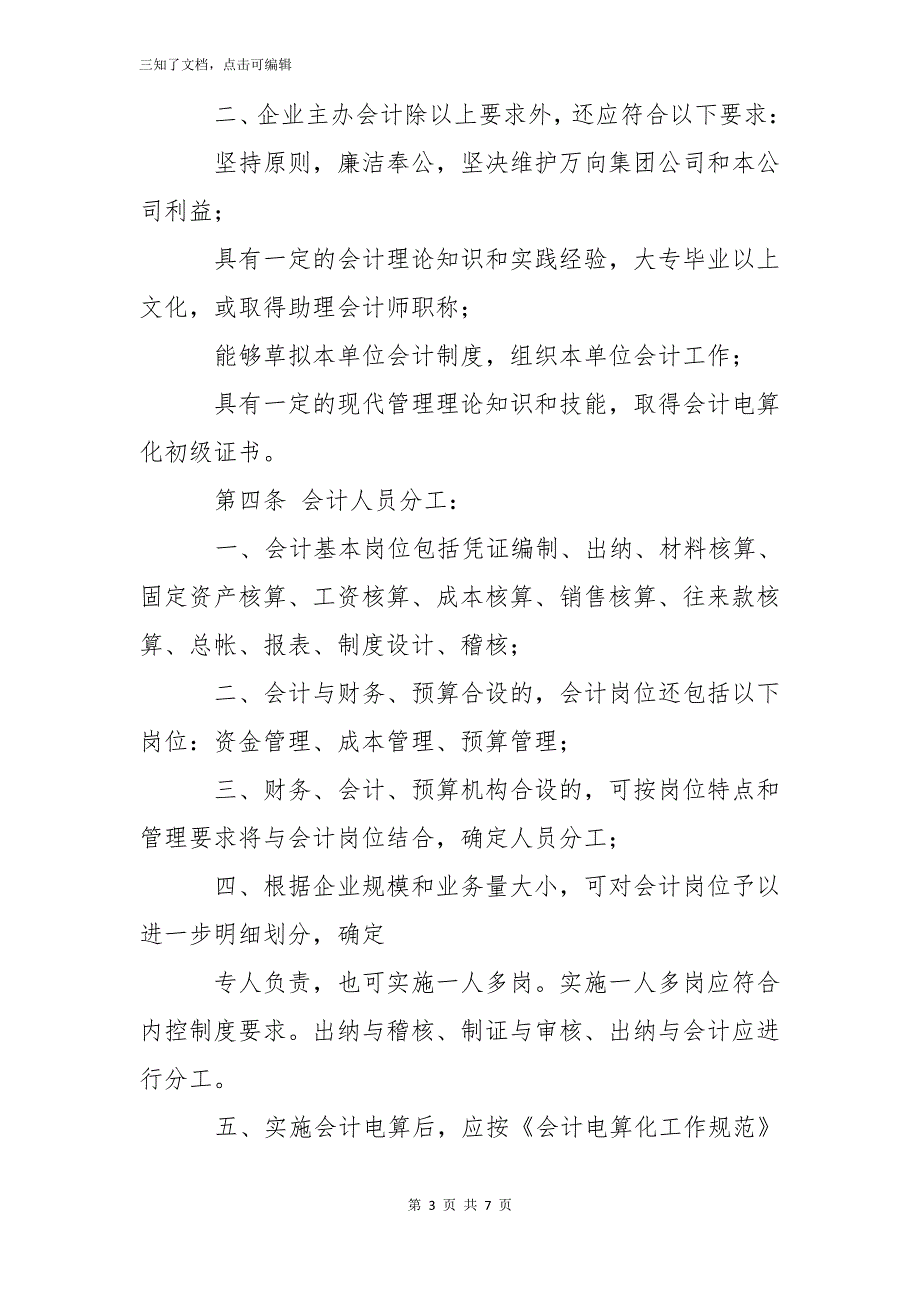 三知了文档，点击可编辑
二、企业主办会计除以上要求外，还应符合以下要求：
坚持原则，廉洁奉公，坚决维护万向集团公司和本公
司利益；
具有一定的会计理论知识和实践经验，大专毕业以上
文化，或取得助理会计师职称；
能够草拟本单位会计制度，组织本单位会计工作；
具有一定的现代管理理论知识和技能，取得会计电算
化初级证书。
第四条 会计人员分工：
一、会计基本岗位包括凭证编制、出纳、材料核算、
固定资产核算、工资核算、成本核算、销售核算、往来款核
算、总帐、报表、制度设计、稽核；
二、会计与财务、预算合设的，会计岗位还包括以下
岗位：资金管理、成本管理、预算管理；
三、财务、会计、预算机构合设的，可按岗位特点和
管理要求将与会计岗位结合，确定人员分工；
四、根据企业规模和业务量大小，可对会计岗位予以
进一步明细划分，确定
专人负责，也可实施一人多岗。实施一人多岗应符合
内控制度要求。出纳与稽核、制证与审核、出纳与会计应进
行分工。
五、实施会计电算后，应按《会计电算化工作规范》
第 3 页 共 7 页